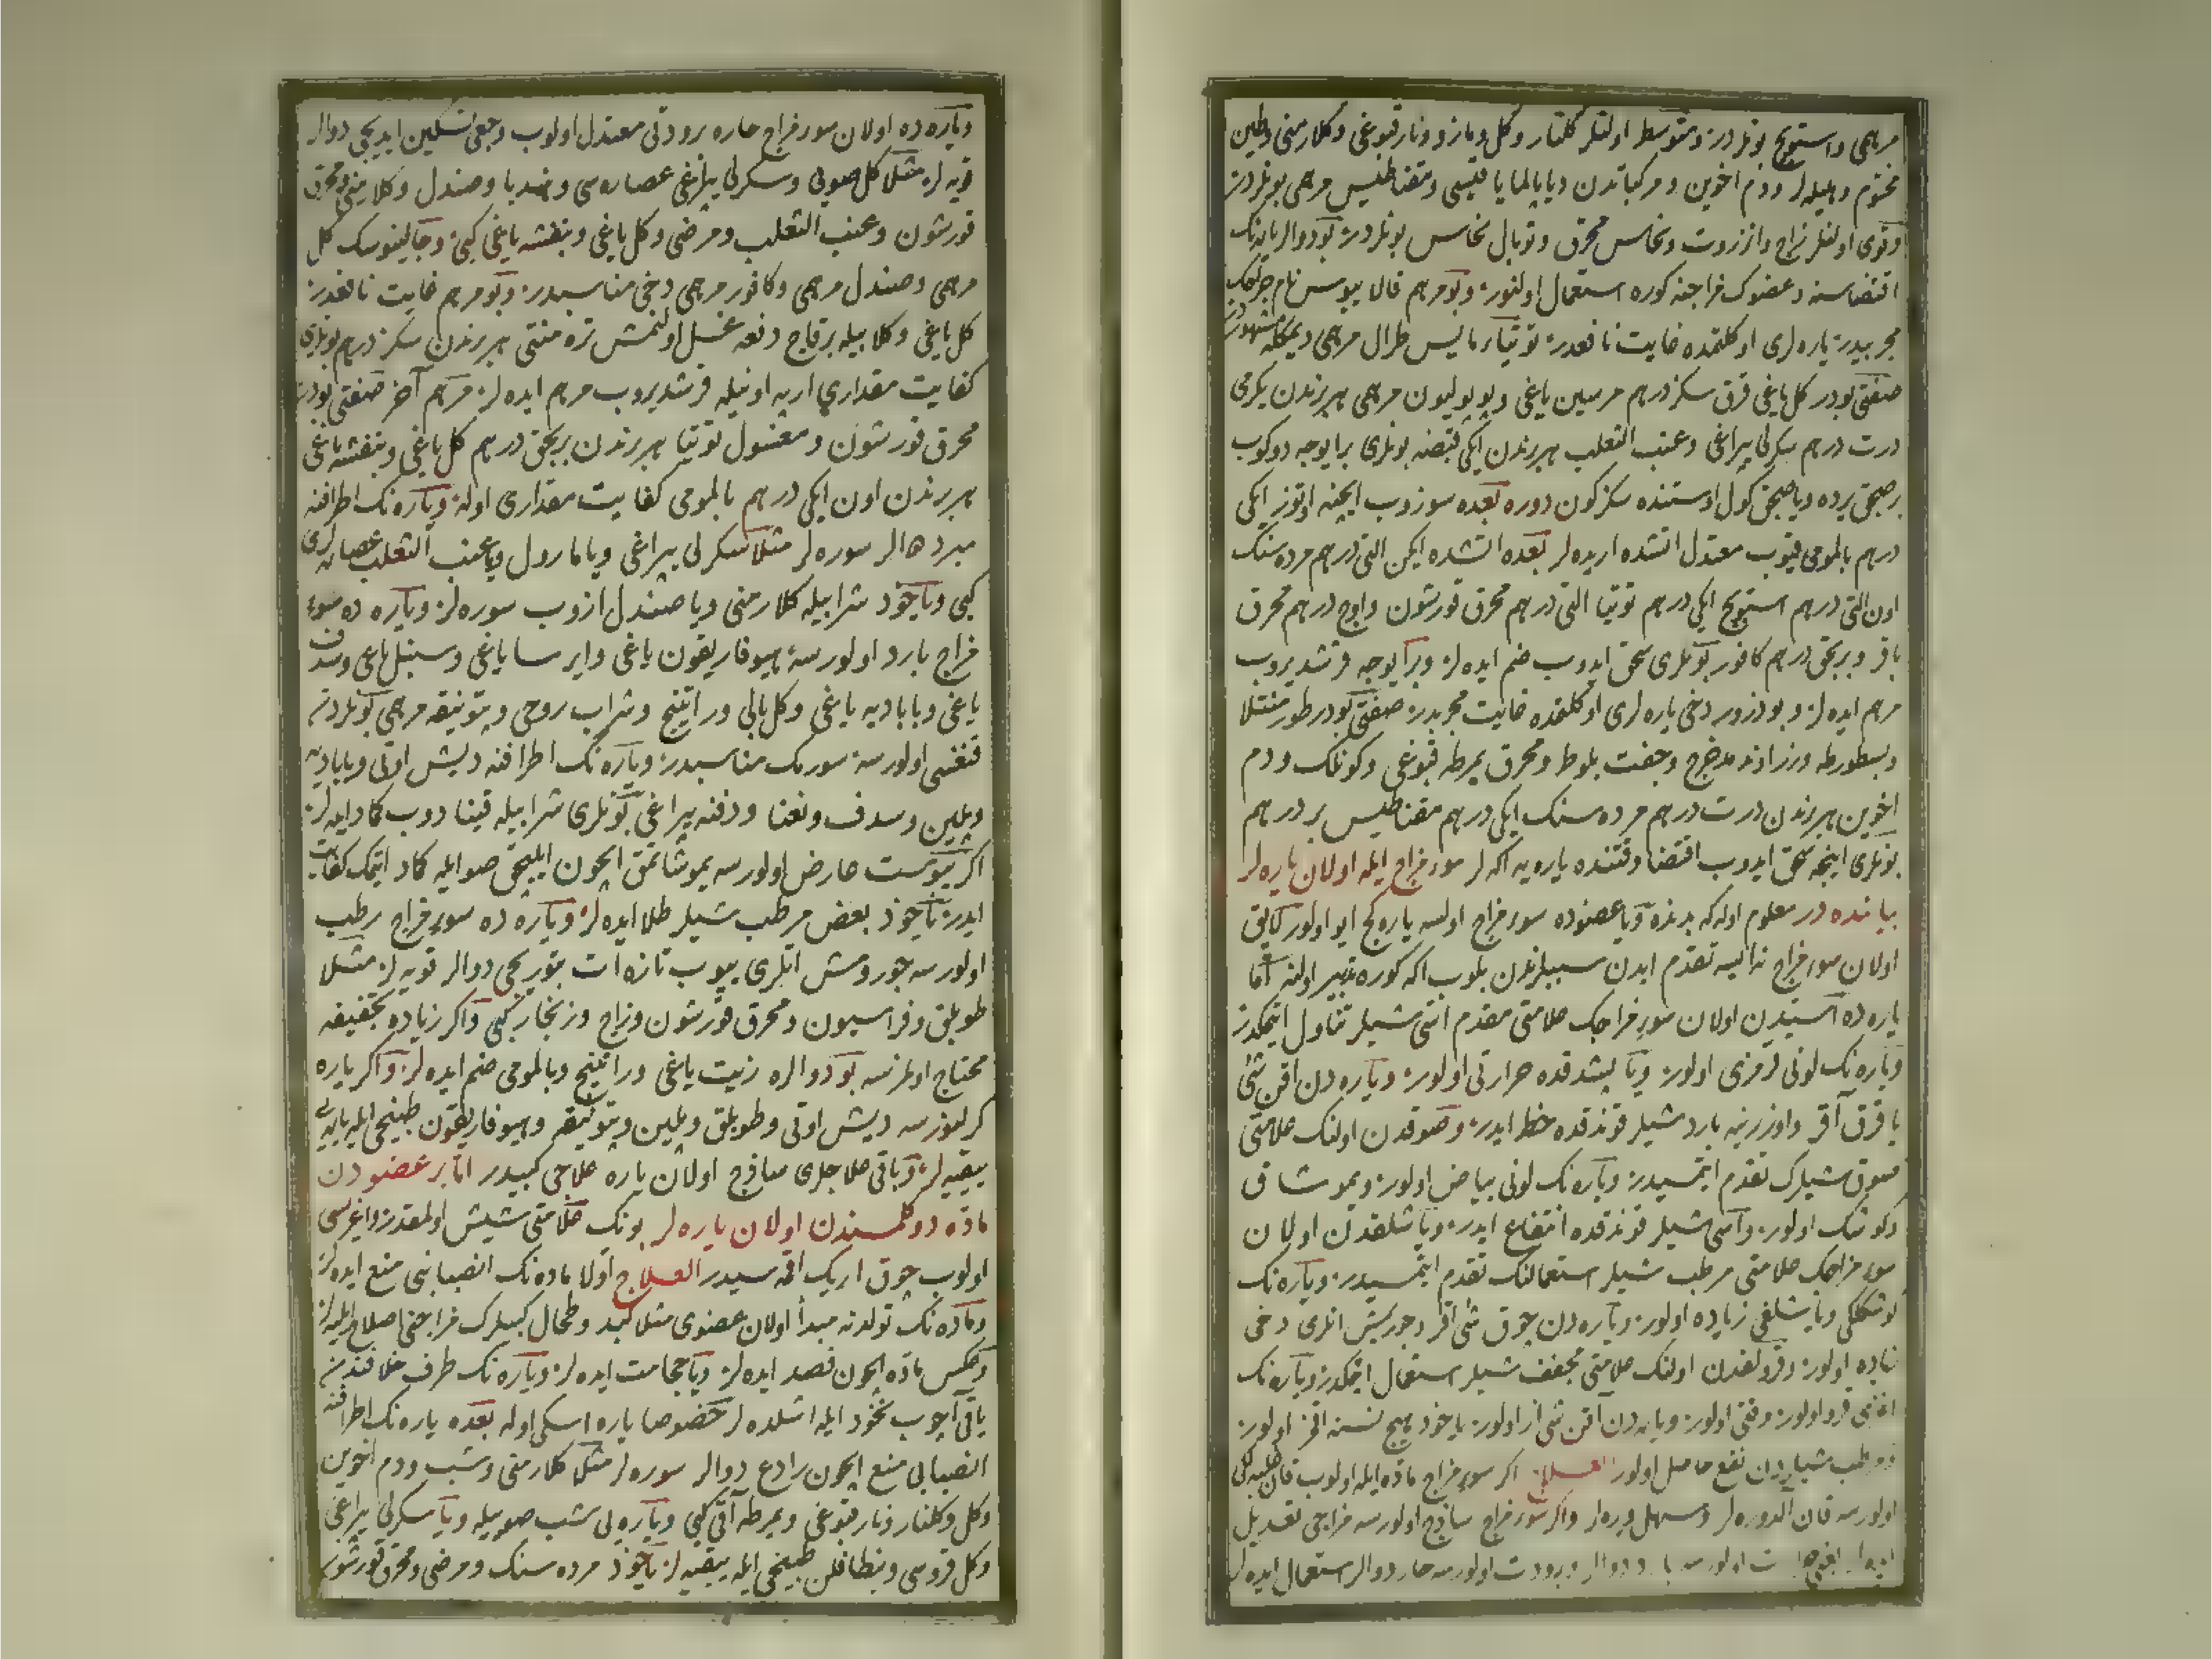 مرهمى و استوبج بونلردر و متوسط اولنلر كلنار و كل و مازو و نار قبوغى و كلارمنى و طين
مختوم و هليله لر و دم اخوين و مركباتدن ديابالمايا قيسى و مقناطيس مرهمى بونلردر
و قوى اولنلر زاج و انزروت و نحاس محرق و توبال نحاس بونلردر بو دوالر يارەنك
اقتضاسنه و عضوك مزاجنه كوره استعمال اولنور و بو مرهم قالا بيوس نام جراحك
مجربيدر ياره لرى اوكلتمده غايت نافعدر توتيا
صفتى بودر كل ياغى قرق سكز درهم مرسين ياغى و پوپوليون مرهمى هر برندن يكرمى
درت درهم سكرلى يپراغى و عنب الثعلب هر برندن ايكى قبضه بونلرى برايوجه دوكوب
بر صيجق يرده ويا صيجق كول اوستنده سكز كون دوره بعده سوزوب ايچنه اوتوز ايكى
درهم بالمومى قيوب معتدل آتشده اريده لر بعده آتشده ايكن التى درهم مرده سنك
اون التى درهم استوبج ايكى درهم توتيا التى درهم محرق قورشون و اوچ درهم محرق
باقر و بربچق درهم كافور بونلرى سحق ايدوب ضم ايده لر و برايوجه قرشديروب
مرهم ايده لر و بو ذرور دخى ياره لرى اوكلمقده غايت مجربدر صفتى بودر
و زراوند مدحرج و جفت بلوط و محرق يمرطه قبوغى و كونلك و دم
اخوين هر برندن درت درهم مرده سنك ايكى درهم مقناطيس بر درهم
بونلرى اينجه سحق ايدوب اقتضا وقتنده ياره يه اكه لر سوء مزاج ايله اولان ياره لر
بياننده در معلوم اوله كه بدنده ويا عضوده سوء مزاج اولسه ياره كج ايو اولور
اولان سوء مزاج نه ايسه تقدم ايدن سببلرندن بلوب اكه كوره تدبير اولنه اما
ياره ده اسيدن اولان سوء مزاجك علامتى مقدم اسى شيلر تناول ايتمكدر
و ياره نك لونى قرمزى اولور ويا ياپشدقده حرارتى اولور و ياره دن آقن شى
يا قرق آقر و اوزرينه بارد شيلر قوندقده حظ ايدر و صوقدن اولنك علامتى
صوق شيلرك تقدم ايتمسيدر و ياره نك لونى بياض اولور و يموشاق
و كوشك اولور و اسى شيلر قوندقده انتفاع ايدر و ياشلقدن اولان
سوء مزاجك علامتى مرطب شيلر استعمالنك تقدم ايتمسيدر و ياره نك
كوشكلكى و ياشلغى زياده اولور و ياره دن چوق شى آقر و چوريمش اتلرى دخى
زياده اولور و قرولقدن اولنك علامتى مجفف شيلر استعمال ايتمكدر و ياره نك
قرو اولور و قتى اولور و ياره دن آقن شى از اولور ياخود هيچ نسنه آقمز اولور
و مرطب شيلردن نفع حاصل اولور العلاج اكر سوء مزاج ماده ايله اولوب قان غلبه لكى
اولورسه قان الدوره لر و مسهل ويره لر و اكر سوء مزاج ساذج اولورسه مزاجى تعديل
اولورسه بارد دوالر و برودت اولورسه حار دوالر استعمال ايده لر
و ياره ده اولان سوء مزاج حاره برودتى معتدل اولوب وجعى تسكين ايديجى دوالر
قويه لر مثلا كل صويى و سكرلى يپراغى عصاره سى و هندبا و صندل و كلارمنى و محرق
قورشون و عنب الثعلب و مرضى و كل ياغى و بنفشه ياغى كبى و جالينوسك كل
مرهمى و صندل مرهمى و كافور مرهمى دخى مناسبدر و بو مرهم غايت نافعدر
كل ياغى و كلاب ايله برقاج دفعه غسل اولنمش تره منتى هر برندن سكز درهم بونلرى
كفايت مقدارى اريه اونيله قرشديروب مرهم ايده لر مرهم آخر صفتى بودر
محرق قورشون و مغسول توتيا هر برندن بربچق درهم كل ياغى و بنفشه ياغى
هر برندن اون ايكى درهم بالمومى كفايت مقدارى اوله و ياره نك اطرافنه
مبرد دوالر سوره لر مثلا سكرلى يپراغى ويا مارول ويا عنب الثعلب عصاره لرى
كبى وياخود شراب ايله كلارمنى ويا صندل ازوب سوره لر و ياره ده سوء
مزاج بارد اولورسه هيوفاريقون ياغى و ايرسا ياغى و سنبل ياغى و سدف
ياغى و بابادیه ياغى و كل بالى و راتينج و شراب روحى و بتونيقه مرهمى بونلردن
قنغسى اولورسه سورمك مناسبدر و ياره نك اطرافنه ديش اوتى و بابادیه
و پلين و سدف و نعنا و دفنه يپراغى بونلرى شراب ايله قينادوب كماد ايده لر
اكر يبوست عارض اولورسه يموشاتمق ايچون ايليجق صو ايله كماد ايتمك كفايت
ايدر ياخود بعض مرطب شيلر طلا ايده لر و ياره ده سوء مزاج رطب
اولورسه چورومش اتلرى ييوب تازه ات بتوريجى دوالر قويه لر مثلا
طوپلق و فراسيون و محرق قورشون و زاج و زنجار كبى و اكر زياده تجفيفه
محتاج اولمزسه بو دوالره زيت ياغى و راتينج و بالمومى ضم ايده لر و اكر ياره
كرلنورسه ديش اوتى و طوپلق و پلين و بتونيقه و هيوفاريقون طبيخى ايله ياره يى
ييقيه لر و باقى علاجلرى ساذج اولان ياره علاجى كبيدر اما بر عضودن
ماده دوكلمسندن اولان ياره لر بونك علامتى شيش اولمقدر و اغريسى
اولوب چوق ايرك آقمسيدر العلاج اولا ماده نك انصبابنى منع ايده لر
و ماده نك تولدنه مبدأ اولان عضوى مثلا كبد و طحال كبيلرك مزاجنى اصلاح ايليه لر
و عكس ماده ايچون فصد ايده لر ويا حجامت ايده لر و ياره نك طرف خلافندن
ياقى آچوب نخود ايله اشلده لر خصوصا ياره اسكى اوله بعده ياره نك اطرافنه
انصبابى منع ايچون رادع دوالر سوره لر مثلا كلارمنى و شب و دم اخوين
و كل و كلنار و نار قبوغى و يمرطه آقى كبى و ياره يى شب صويى ايله ويا سكرلى يپراغى
و كل قروسى و بنطافلن طبيخى ايله ييقيه لر ياخود مرده سنك و مرضى و محرق قورشون